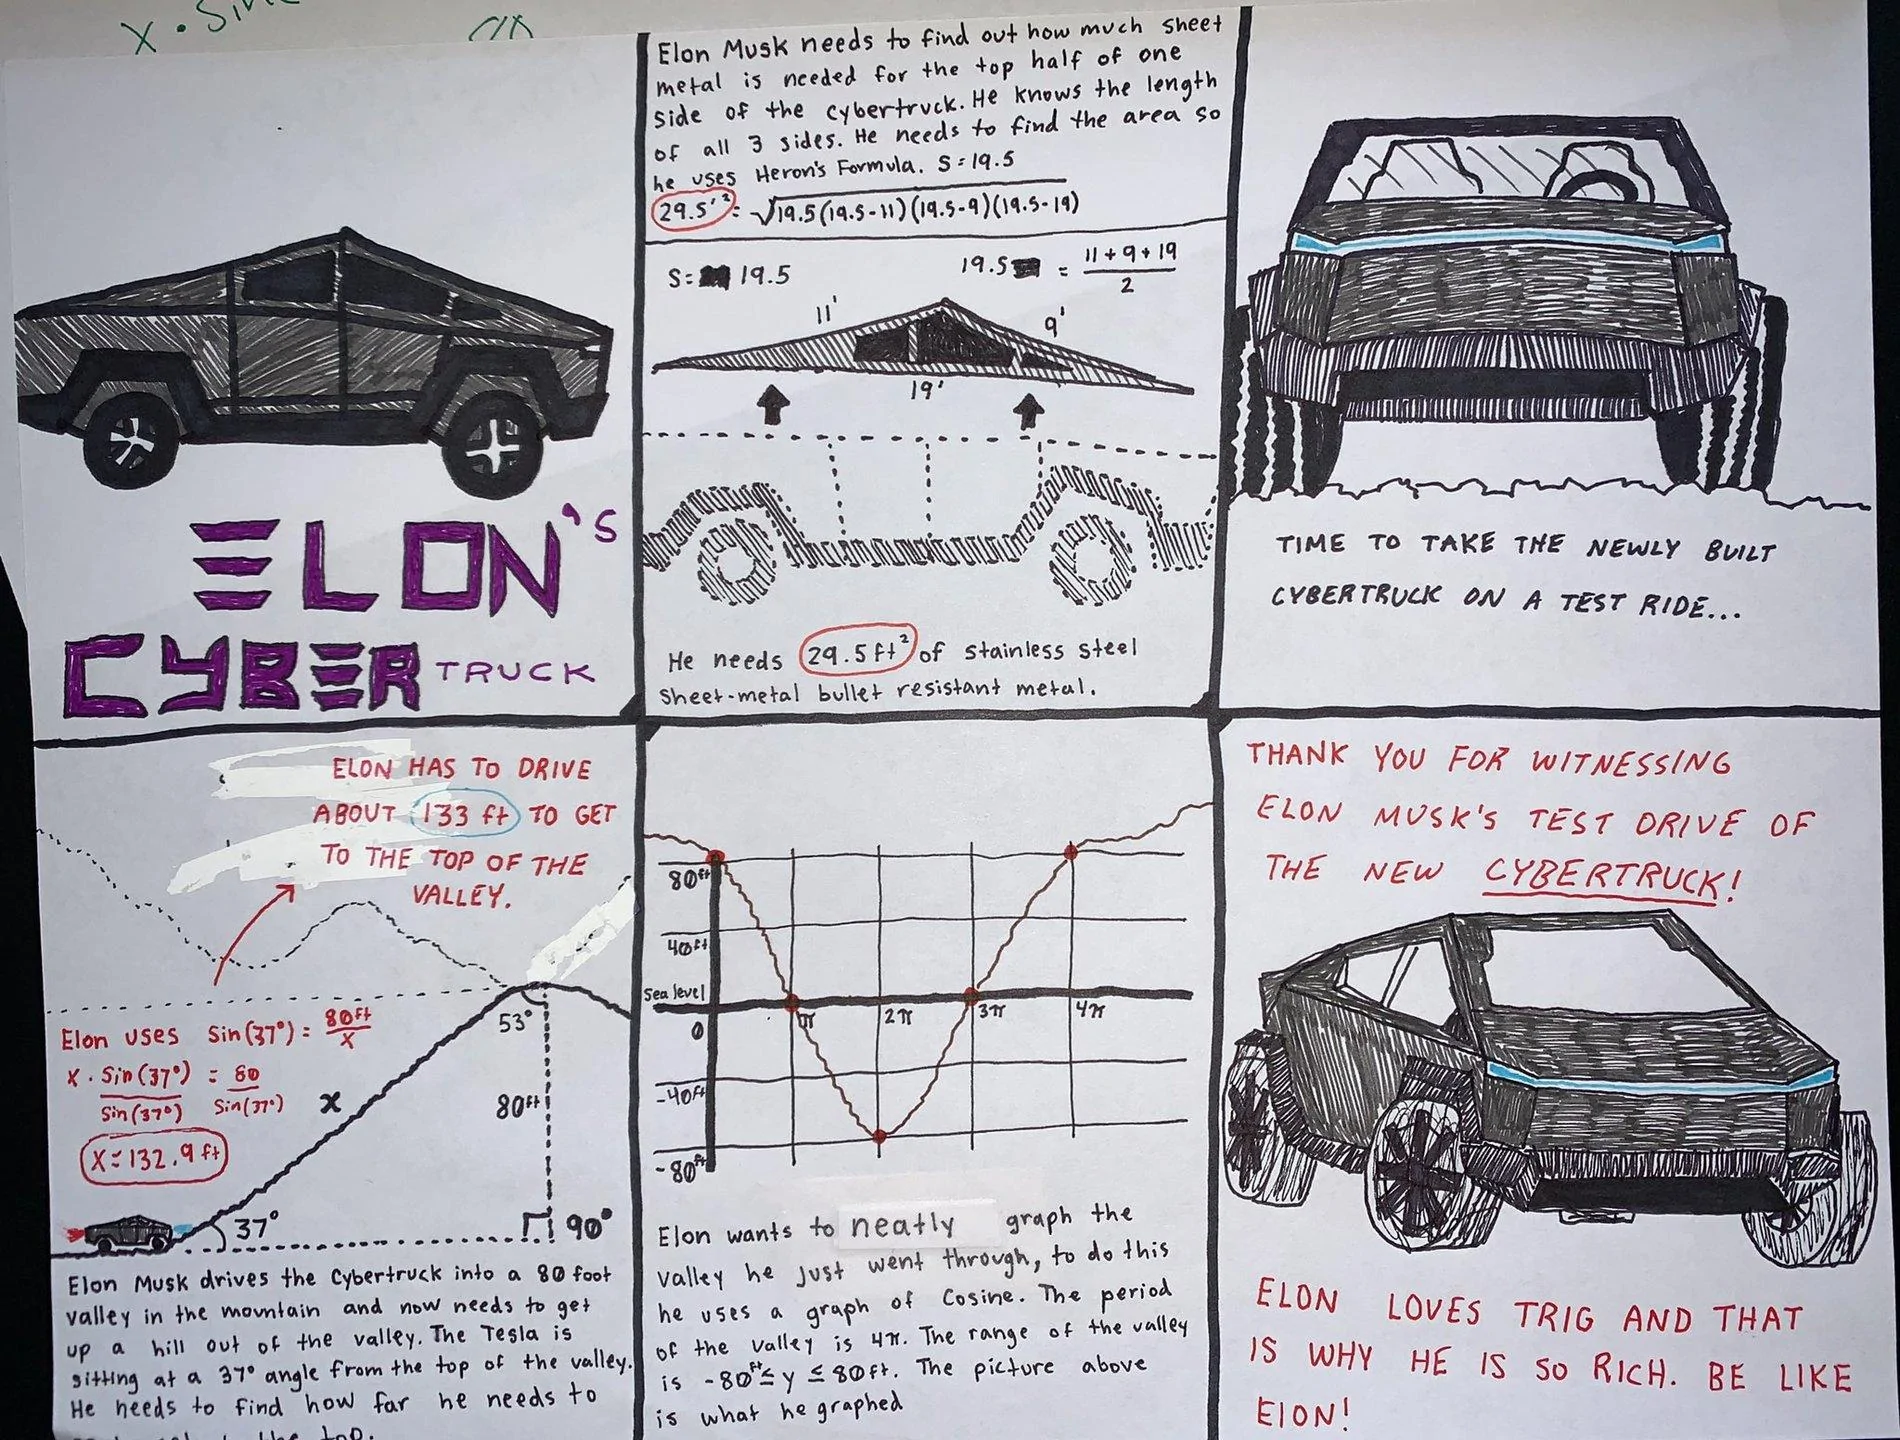 X · Sin
ELON'S
CYBERTRUCK
Elon Musk needs to find out how much sheet
metal is needed for the top half of one
side of the cybertruck. He knows the length
of all 3 sides. He needs to find the area so
he uses Heron's Formula. S=19.5
29.5'² = √19.5(19.5-11)(19.5-9)(19.5-19)
S= 19.5
19.5 = 11+9+19
2
11'
9'
19'
He needs 29.5 ft² of stainless steel
sheet-metal bullet resistant metal.
TIME TO TAKE THE NEWLY BUILT
CYBERTRUCK ON A TEST RIDE...
ELON HAS TO DRIVE
ABOUT 133 ft TO GET
TO THE TOP OF THE
VALLEY.
Elon uses Sin(37°) = 80ft
X
X · Sin(37°) = 80
Sin(37°) Sin(37°)
X = 132.9 ft
53°
X
80ft
37°
90°
Elon Musk drives the Cybertruck into a 80 foot
valley in the mountain and now needs to get
up a hill out of the valley. The Tesla is
sitting at a 37° angle from the top of the valley.
He needs to find how far he needs to
the top.
80ft
40ft
Sea level
0
-40ft
-80ft
π
2π
3π
4π
Elon wants to neatly graph the
valley he just went through, to do this
he uses a graph of Cosine. The period
of the valley is 4π. The range of the valley
is -80ft ≤ y ≤ 80ft. The picture above
is what he graphed
THANK YOU FOR WITNESSING
ELON MUSK'S TEST DRIVE OF
THE NEW CYBERTRUCK!
ELON LOVES TRIG AND THAT
IS WHY HE IS SO RICH. BE LIKE
ElON!